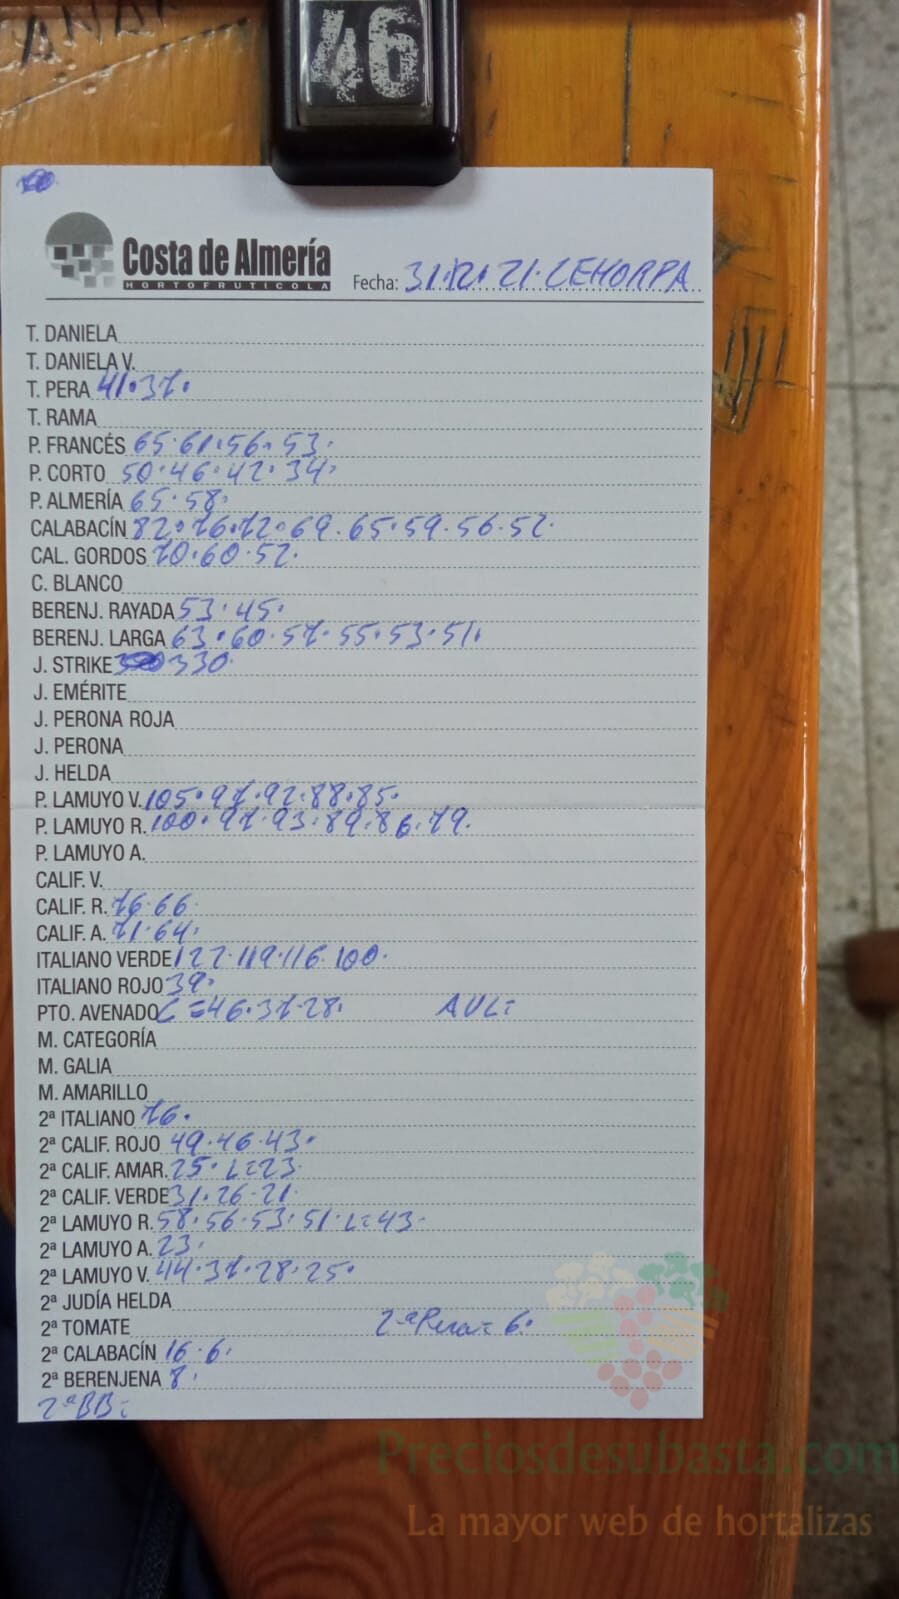 46
Costa de Almería
HORTOFRUTICOLA
Fecha: 31.12.21. CEHORPA
T. DANIELA
T. DANIELA V.
T. PERA 41.37.
T. RAMA
P. FRANCÉS 65.61.56.53.
P. CORTO 50.46.42.34.
P. ALMERÍA 65.58.
CALABACÍN 82.76.72.69.65.59.56.52
CAL. GORDOS 70.60.52.
C. BLANCO
BERENJ. RAYADA 53.45.
BERENJ. LARGA 63.60.57.55.53.51.
J. STRIKE 330.
J. EMÉRITE
J. PERONA ROJA
J. PERONA
J. HELDA
P. LAMUYO V. 105.97.92.88.85.
P. LAMUYO R. 100.97.93.89.86.79.
P. LAMUYO A.
CALIF. V.
CALIF. R. 76.66.
CALIF. A. 71.64.
ITALIANO VERDE 127.119.116.100.
ITALIANO ROJO 39.
PTO. AVENADO C=46.37.28. AVL=
M. CATEGORÍA
M. GALIA
M. AMARILLO
2ª ITALIANO 76.
2ª CALIF. ROJO 49.46.43.
2ª CALIF. AMAR. 25. L=23.
2ª CALIF. VERDE 31.26.21.
2ª LAMUYO R. 58.56.53.51.L=43.
2ª LAMUYO A. 23.
2ª LAMUYO V. 44.37.28.25.
2ª JUDÍA HELDA
2ª TOMATE 2ªPera=6.
2ª CALABACÍN 16.6.
2ª BERENJENA 8.
2ªBB=
Preciosdesubasta.com
La mayor web de hortalizas